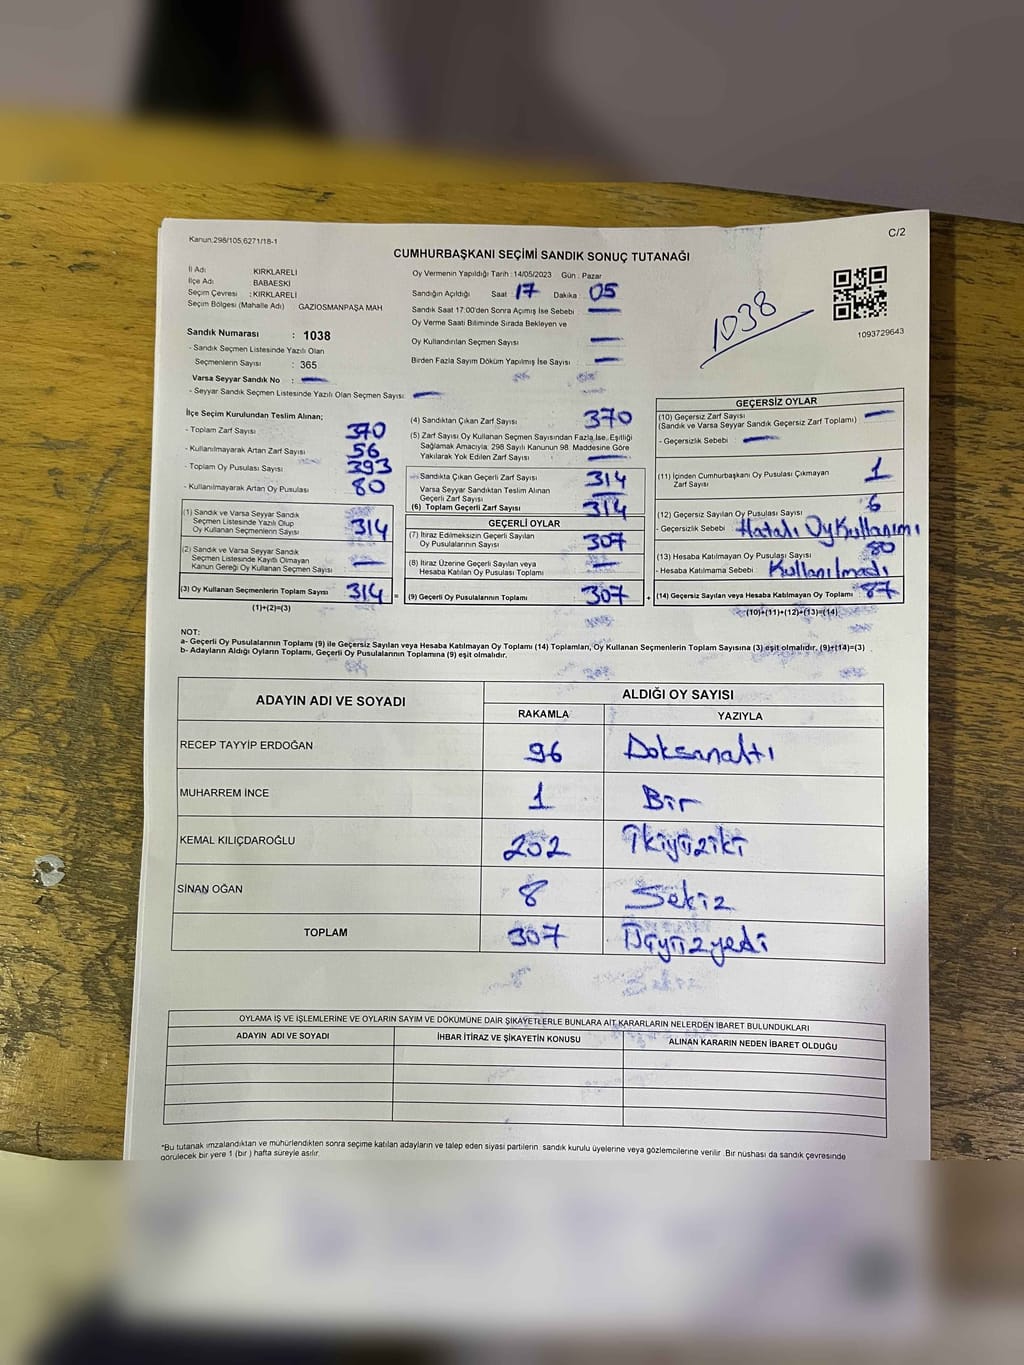 Kanun.298/105,6271/18-1
C/2
CUMHURBAŞKANI SEÇİMİ SANDIK SONUÇ TUTANAĞI
İl Adı KIRKLARELİ
İlçe Adı BABAESKİ
Seçim Çevresi : KIRKLARELİ
Seçim Bölgesi (Mahalle Adı) GAZİOSMANPAŞA MAH
Sandık Numarası : 1038
- Sandık Seçmen Listesinde Yazılı Olan
Seçmenlerin Sayısı : 365
Varsa Seyyar Sandık No : —
- Seyyar Sandık Seçmen Listesinde Yazılı Olan Seçmen Sayısı: —
Oy Vermenin Yapıldığı Tarih :14/05/2023 Gün : Pazar
Sandığın Açıldığı Saat 17 Dakika : 05
Sandık Saat 17:00'den Sonra Açılmış İse Sebebi —
Oy Verme Saati Bitiminde Sırada Bekleyen ve
Oy Kullandırılan Seçmen Sayısı —
Birden Fazla Sayım Döküm Yapılmış İse Sayısı —
1038
1093729643
İlçe Seçim Kurulundan Teslim Alınan;
- Toplam Zarf Sayısı 370
- Kullanılmayarak Artan Zarf Sayısı 56
- Toplam Oy Pusulası Sayısı 393
- Kullanılmayarak Artan Oy Pusulası 80
(1) Sandık ve Varsa Seyyar Sandık
Seçmen Listesinde Yazılı Olup
Oy Kullanan Seçmenlerin Sayısı 314
(2) Sandık ve Varsa Seyyar Sandık
Seçmen Listesinde Kayıtlı Olmayan
Kanun Gereği Oy Kullanan Seçmen Sayısı —
(3) Oy Kullanan Seçmenlerin Toplam Sayısı 314 =
(1)+(2)=(3)
(4) Sandıktan Çıkan Zarf Sayısı 370
(5) Zarf Sayısı Oy Kullanan Seçmen Sayısından Fazla İse, Eşitliği
Sağlamak Amacıyla; 298 Sayılı Kanunun 98. Maddesine Göre
Yakılarak Yok Edilen Zarf Sayısı —
Sandıkta Çıkan Geçerli Zarf Sayısı 314
Varsa Seyyar Sandıktan Teslim Alınan
Geçerli Zarf Sayısı —
(6) Toplam Geçerli Zarf Sayısı 314
GEÇERLİ OYLAR
(7) İtiraz Edilmeksizin Geçerli Sayılan
Oy Pusulalarının Sayısı 307
(8) İtiraz Üzerine Geçerli Sayılan veya
Hesaba Katılan Oy Pusulası Toplamı —
(9) Geçerli Oy Pusulalarının Toplamı 307 +
GEÇERSİZ OYLAR
(10) Geçersiz Zarf Sayısı —
(Sandık ve Varsa Seyyar Sandık Geçersiz Zarf Toplamı)
- Geçersizlik Sebebi —
(11) İçinden Cumhurbaşkanı Oy Pusulası Çıkmayan
Zarf Sayısı 1
(12) Geçersiz Sayılan Oy Pusulası Sayısı 6
- Geçersizlik Sebebi Hatalı Oy Kullanımı
(13) Hesaba Katılmayan Oy Pusulası Sayısı 80
- Hesaba Katılmama Sebebi Kullanılmadı
(14) Geçersiz Sayılan veya Hesaba Katılmayan Oy Toplamı 87
(10)+(11)+(12)+(13)=(14)
NOT:
a- Geçerli Oy Pusulalarının Toplamı (9) ile Geçersiz Sayılan veya Hesaba Katılmayan Oy Toplamı (14) Toplamları, Oy Kullanan Seçmenlerin Toplam Sayısına (3) eşit olmalıdır. (9)+(14)=(3)
b- Adayların Aldığı Oyların Toplamı, Geçerli Oy Pusulalarının Toplamına (9) eşit olmalıdır.
ADAYIN ADI VE SOYADI ALDIĞI OY SAYISI
RAKAMLA YAZIYLA
RECEP TAYYİP ERDOĞAN 96 Doksanaltı
MUHARREM İNCE 1 Bir
KEMAL KILIÇDAROĞLU 202 İkiyüziki
SİNAN OĞAN 8 Sekiz
TOPLAM 307 Üçyüzyedi
OYLAMA İŞ VE İŞLEMLERİNE VE OYLARIN SAYIM VE DÖKÜMÜNE DAİR ŞİKAYETLERLE BUNLARA AİT KARARLARIN NELERDEN İBARET BULUNDUKLARI
ADAYIN ADI VE SOYADI İHBAR İTİRAZ VE ŞİKAYETİN KONUSU ALINAN KARARIN NEDEN İBARET OLDUĞU
*Bu tutanak imzalandıktan ve mühürlendikten sonra seçime katılan adayların ve talep eden siyasi partilerin sandık kurulu üyelerine veya gözlemcilerine verilir. Bir nüshası da sandık çevresinde
görülecek bir yere 1 (bir ) hafta süreyle asılır.